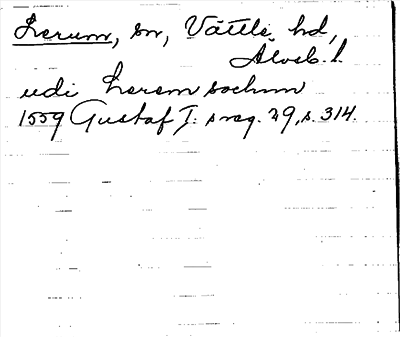 Lerum, sn, Vättle hd,
Älvsb. l.
udi Lerem sochnn
1559 Gustaf I: s reg. 29, s. 314.